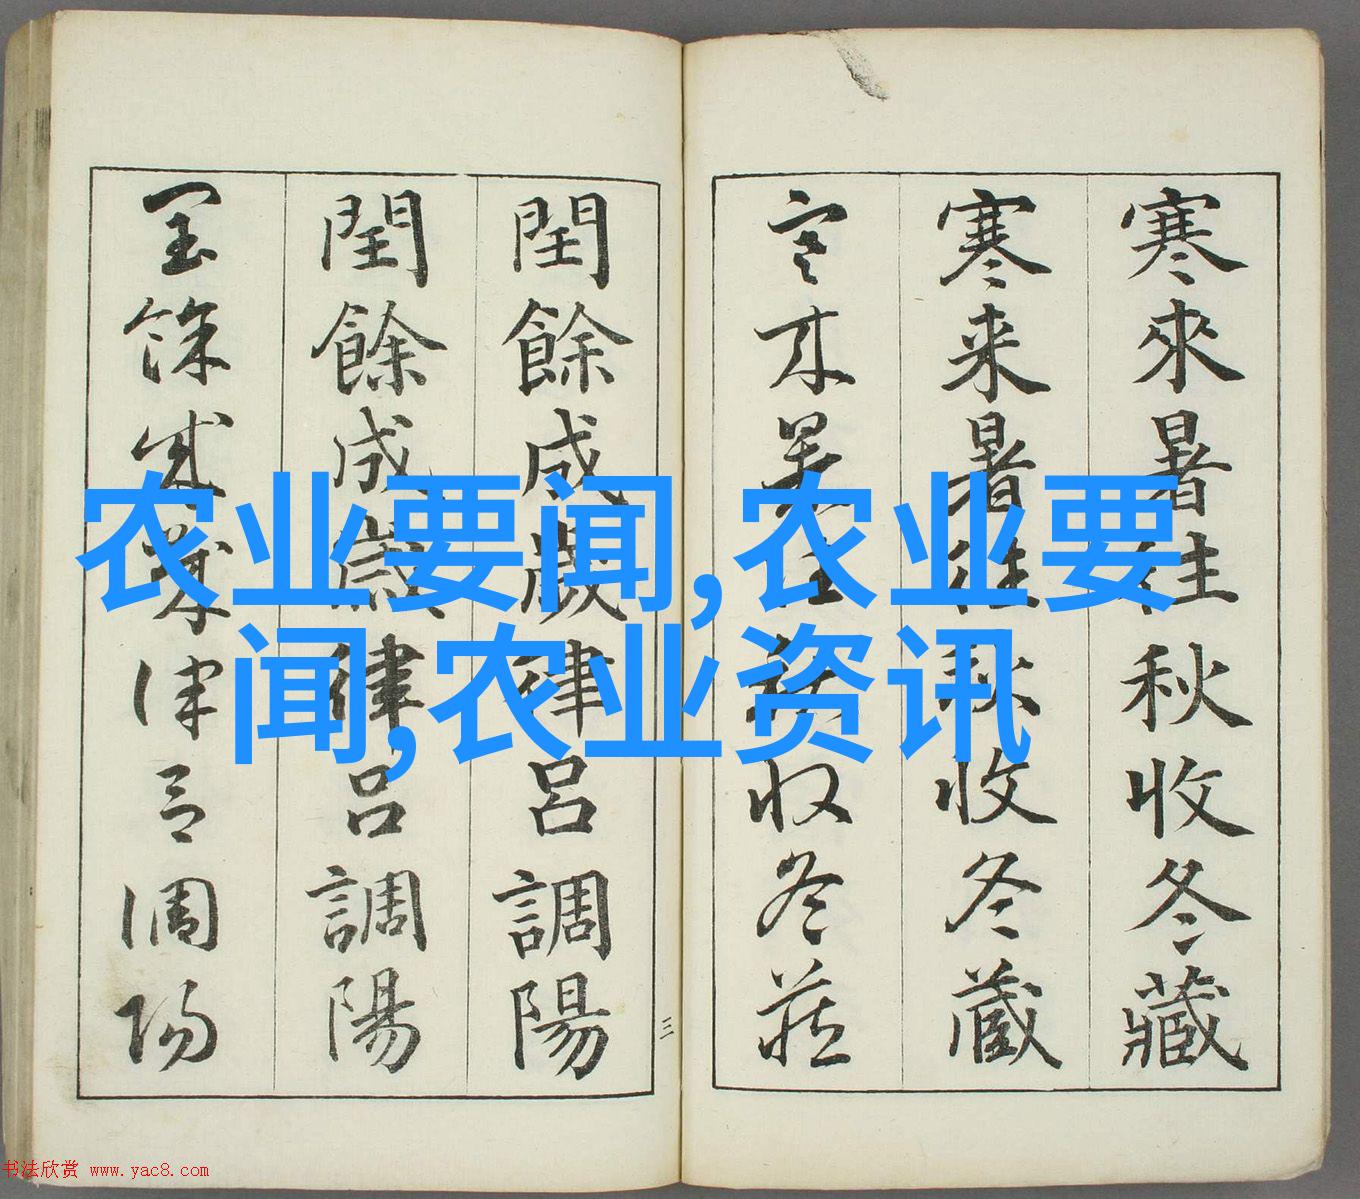 寒來暑往秋收冬藏
寒来暑往秋收冬蔵
寒来暑往秋收冬蔵
閏餘成歲律呂調陽
閏餘成歲律呂調陽
閏餘成歲律吕调陽
三
农业要闻,农业要
闻,农业资讯
书法欣赏 www.yac8.com